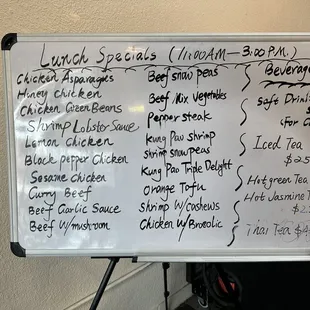 Lunch Specials (11:00AM-3:00P.M.)
Chicken Asparagies
Honey chicken
Chicken Green Beans
Shrimp Lobster Sauce
Lemon chicken
Black pepper chicken
Sesame chicken
Curry Beef
Beef Garlic Sauce
Beef W/mushroom
Beef snow peas
Beef Mix Vegetables
Pepper steak
Kung Pao shrimp
Shrimp snow peas
Kung Pao Triple Delight
Orange Tofu
Shrimp W/cashews
Chicken W/Broccoli
Beverage
Soft Drin
(for C
Iced Tea
$2.5
Hot green Tea
Hot Jasmine T
$2
Thai Tea $4